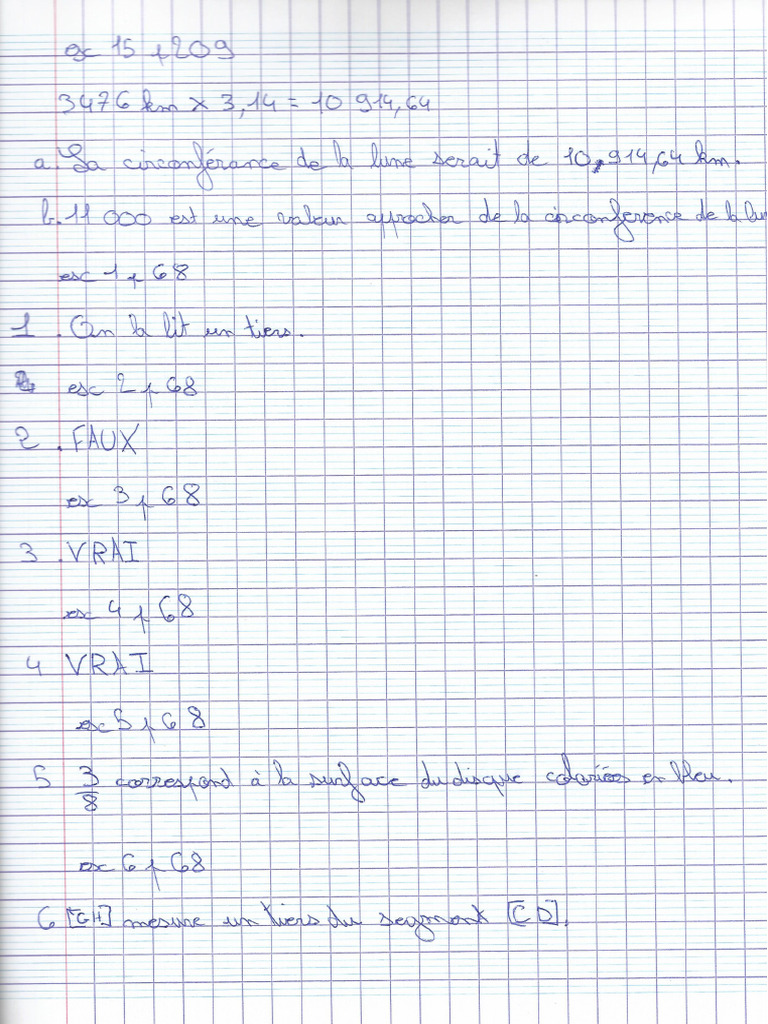 ex 15 p 209
3476 km x 3,14 = 10 914,64
a. La circonférance de la lune serait de 10 914,64 km.
b. 11 000 est une valeur approcher de la circonference de la lu
exc 1 p 68
1. On la lit un tiers.
exc 2 p 68
2. FAUX
ex 3 p 68
3 VRAI
ex 4 p 68
4 VRAI
ex 5 p 68
5 3/8 correspond à la surface du disque coloriées en bleu.
ex 6 p 68
6 [GH] mesure un tiers du segment [CD].